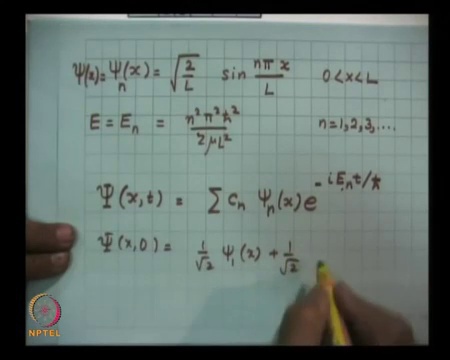 Ψ(x) = Ψₙ(x) = √(2/L) sin nπx/L 0<x<L
E = Eₙ = n²π²ħ²/2μL² n=1,2,3,....
Ψ(x,t) = Σ cₙ Ψₙ(x) e^(-iEₙt/ħ)
Ψ(x,0) = 1/√2 Ψ₁(x) + 1/√2
NPTEL